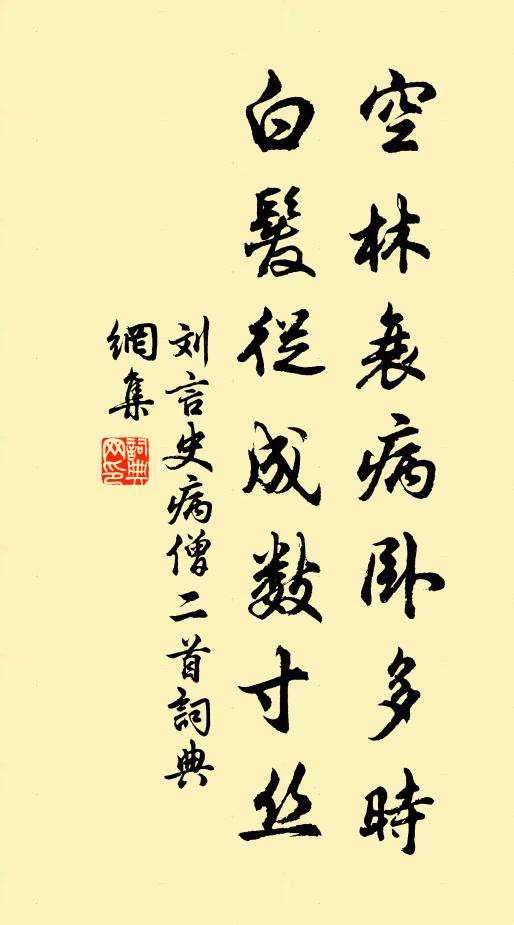 空林衰病卧多時
白髮從成數寸丝
刘言史病僧二首詞典
網集
詞典
网印